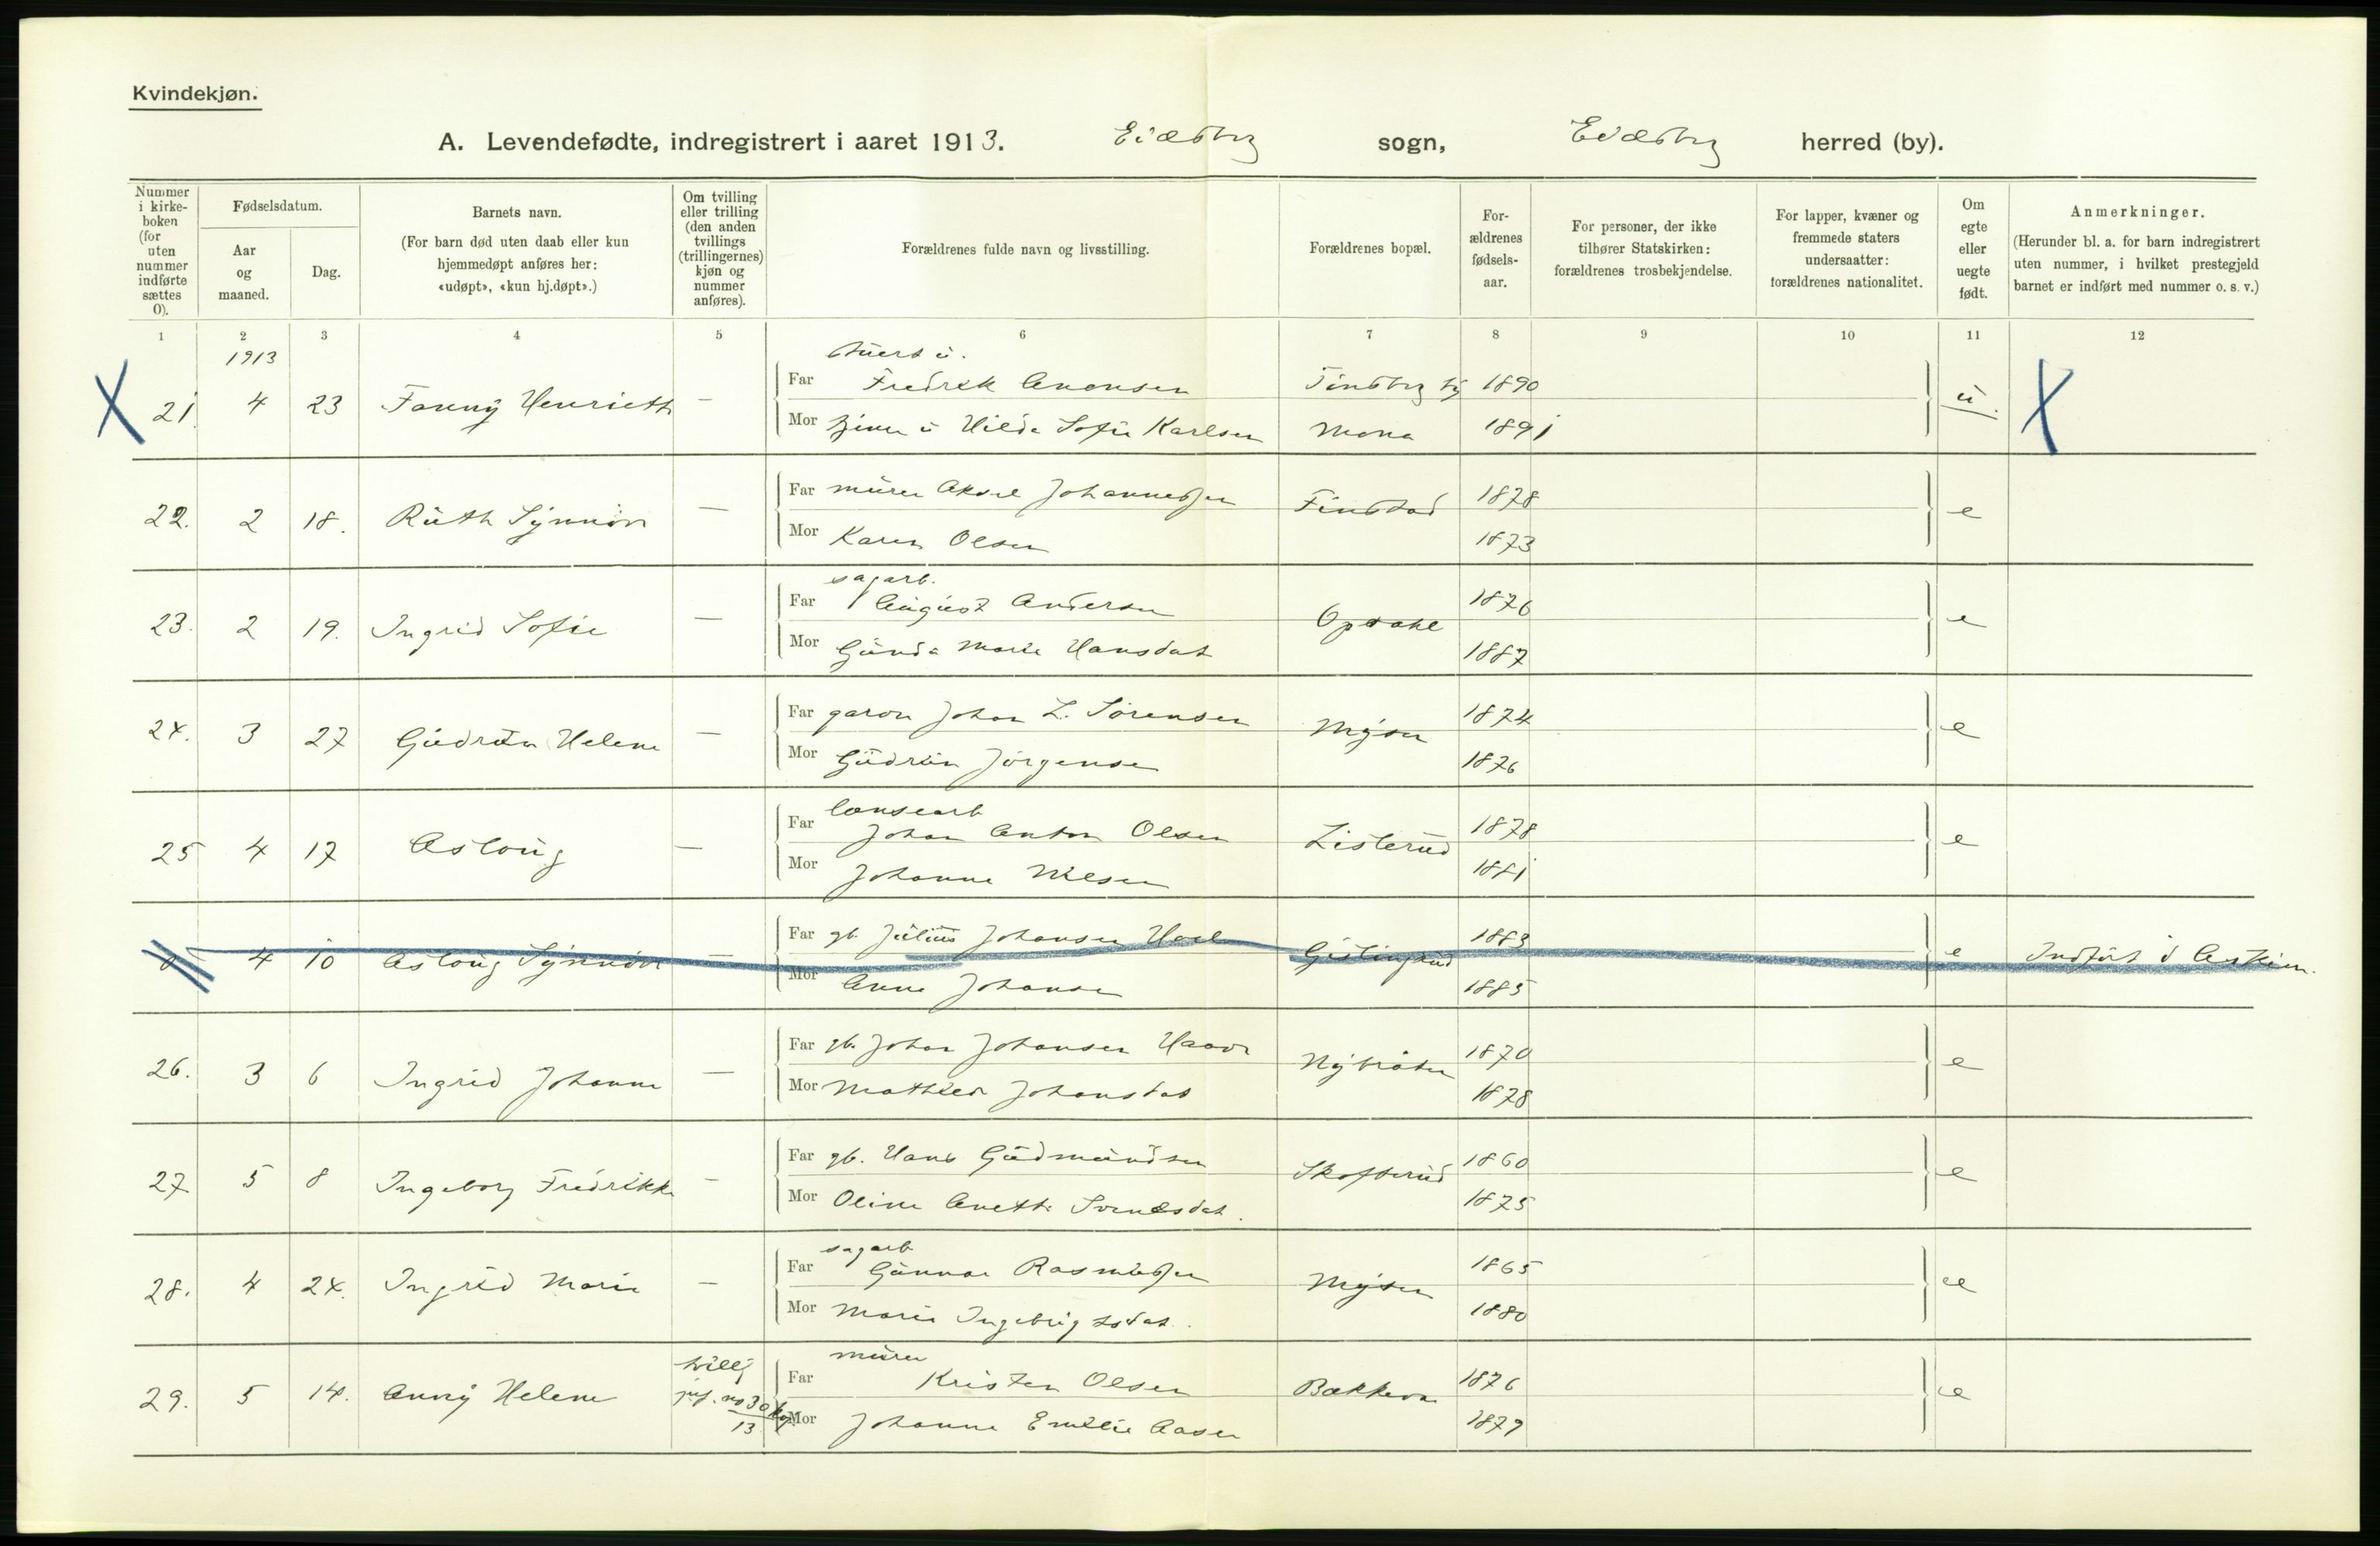 Kvindekjøn.
A. Levendefødte, indregistrert i aaret 1913. Eidsbrg sogn, Eidsbrg herred (by).
Nummer i kirke-boken (for uten nummer indførte sættes 0).
Fødselsdatum.
Aar og maaned.
Dag.
Barnets navn.
(For barn død uten daab eller kun hjemmedøpt anføres her: «udøpt», «kun hj.døpt».)
Om tvilling eller trilling (den anden tvillings (trillingernes) kjøn og nummer anføres).
Forældrenes fulde navn og livsstilling.
Forældrenes bopæl.
For-ældrenes fødsels-aar.
For personer, der ikke tilhører Statskirken: forældrenes trosbekjendelse.
For lapper, kvæner og fremmede staters undersaatter: forældrenes nationalitet.
Om egte eller uegte født.
Anmerkninger.
(Herunder bl. a. for barn indregistrert uten nummer, i hvilket prestegjeld barnet er indført med nummer o. s. v.)
1 2 3 4 5 6 7 8 9 10 11 12
1913
X 21. 4 23 Fanny Henriett —
Far Fredrik 1890
Mor Hilda Sofie Karlsen Mona 1891
u. X
22. 2 18. Ruth Synnöv —
Far murer Aksel Johannessen Finstad 1878
Mor Karen Olsen 1873
e
23. 2 19. Ingrid Sofie —
sagarb.
Far August Andersen Opsahl 1876
Mor Gunda Marie Hansdat 1887
e
24. 3 27 Gudrun Helene —
Far Johan L. Sörensen Mysen 1874
Mor Gudrun Jörgensen 1876
e
25 4 17 Aslaug —
lænsearb
Far Johan Anton Olsen Listerud 1878
Mor Johanne Nilsen 1881
e
0 4 10 Aslaug Synnöv —
Far gb. Julius Johansen 1883
Mor Anna Johansen 1885
e Indfört i Askim.
26. 3 6 Ingrid Johanne —
Far gb. Johan Johansen 1870
Mor Mathilde Johansdat 1878
e
27 5 8 Ingeborg Fredrikke —
Far gb. Hans Gudmundsen Skofterud 1860
Mor Oline Anette Svendsdat. 1875
e
28. 4 24. Ingrid Marie —
sagarb
Far Gunnar Rasmussen Mysen 1865
Mor Marie Ingebrigtsdat. 1880
e
29. 5 14. Anny Helene
murer
Far Kristen Olsen 1876
Mor Johanne Emilie Aasen 1879
e